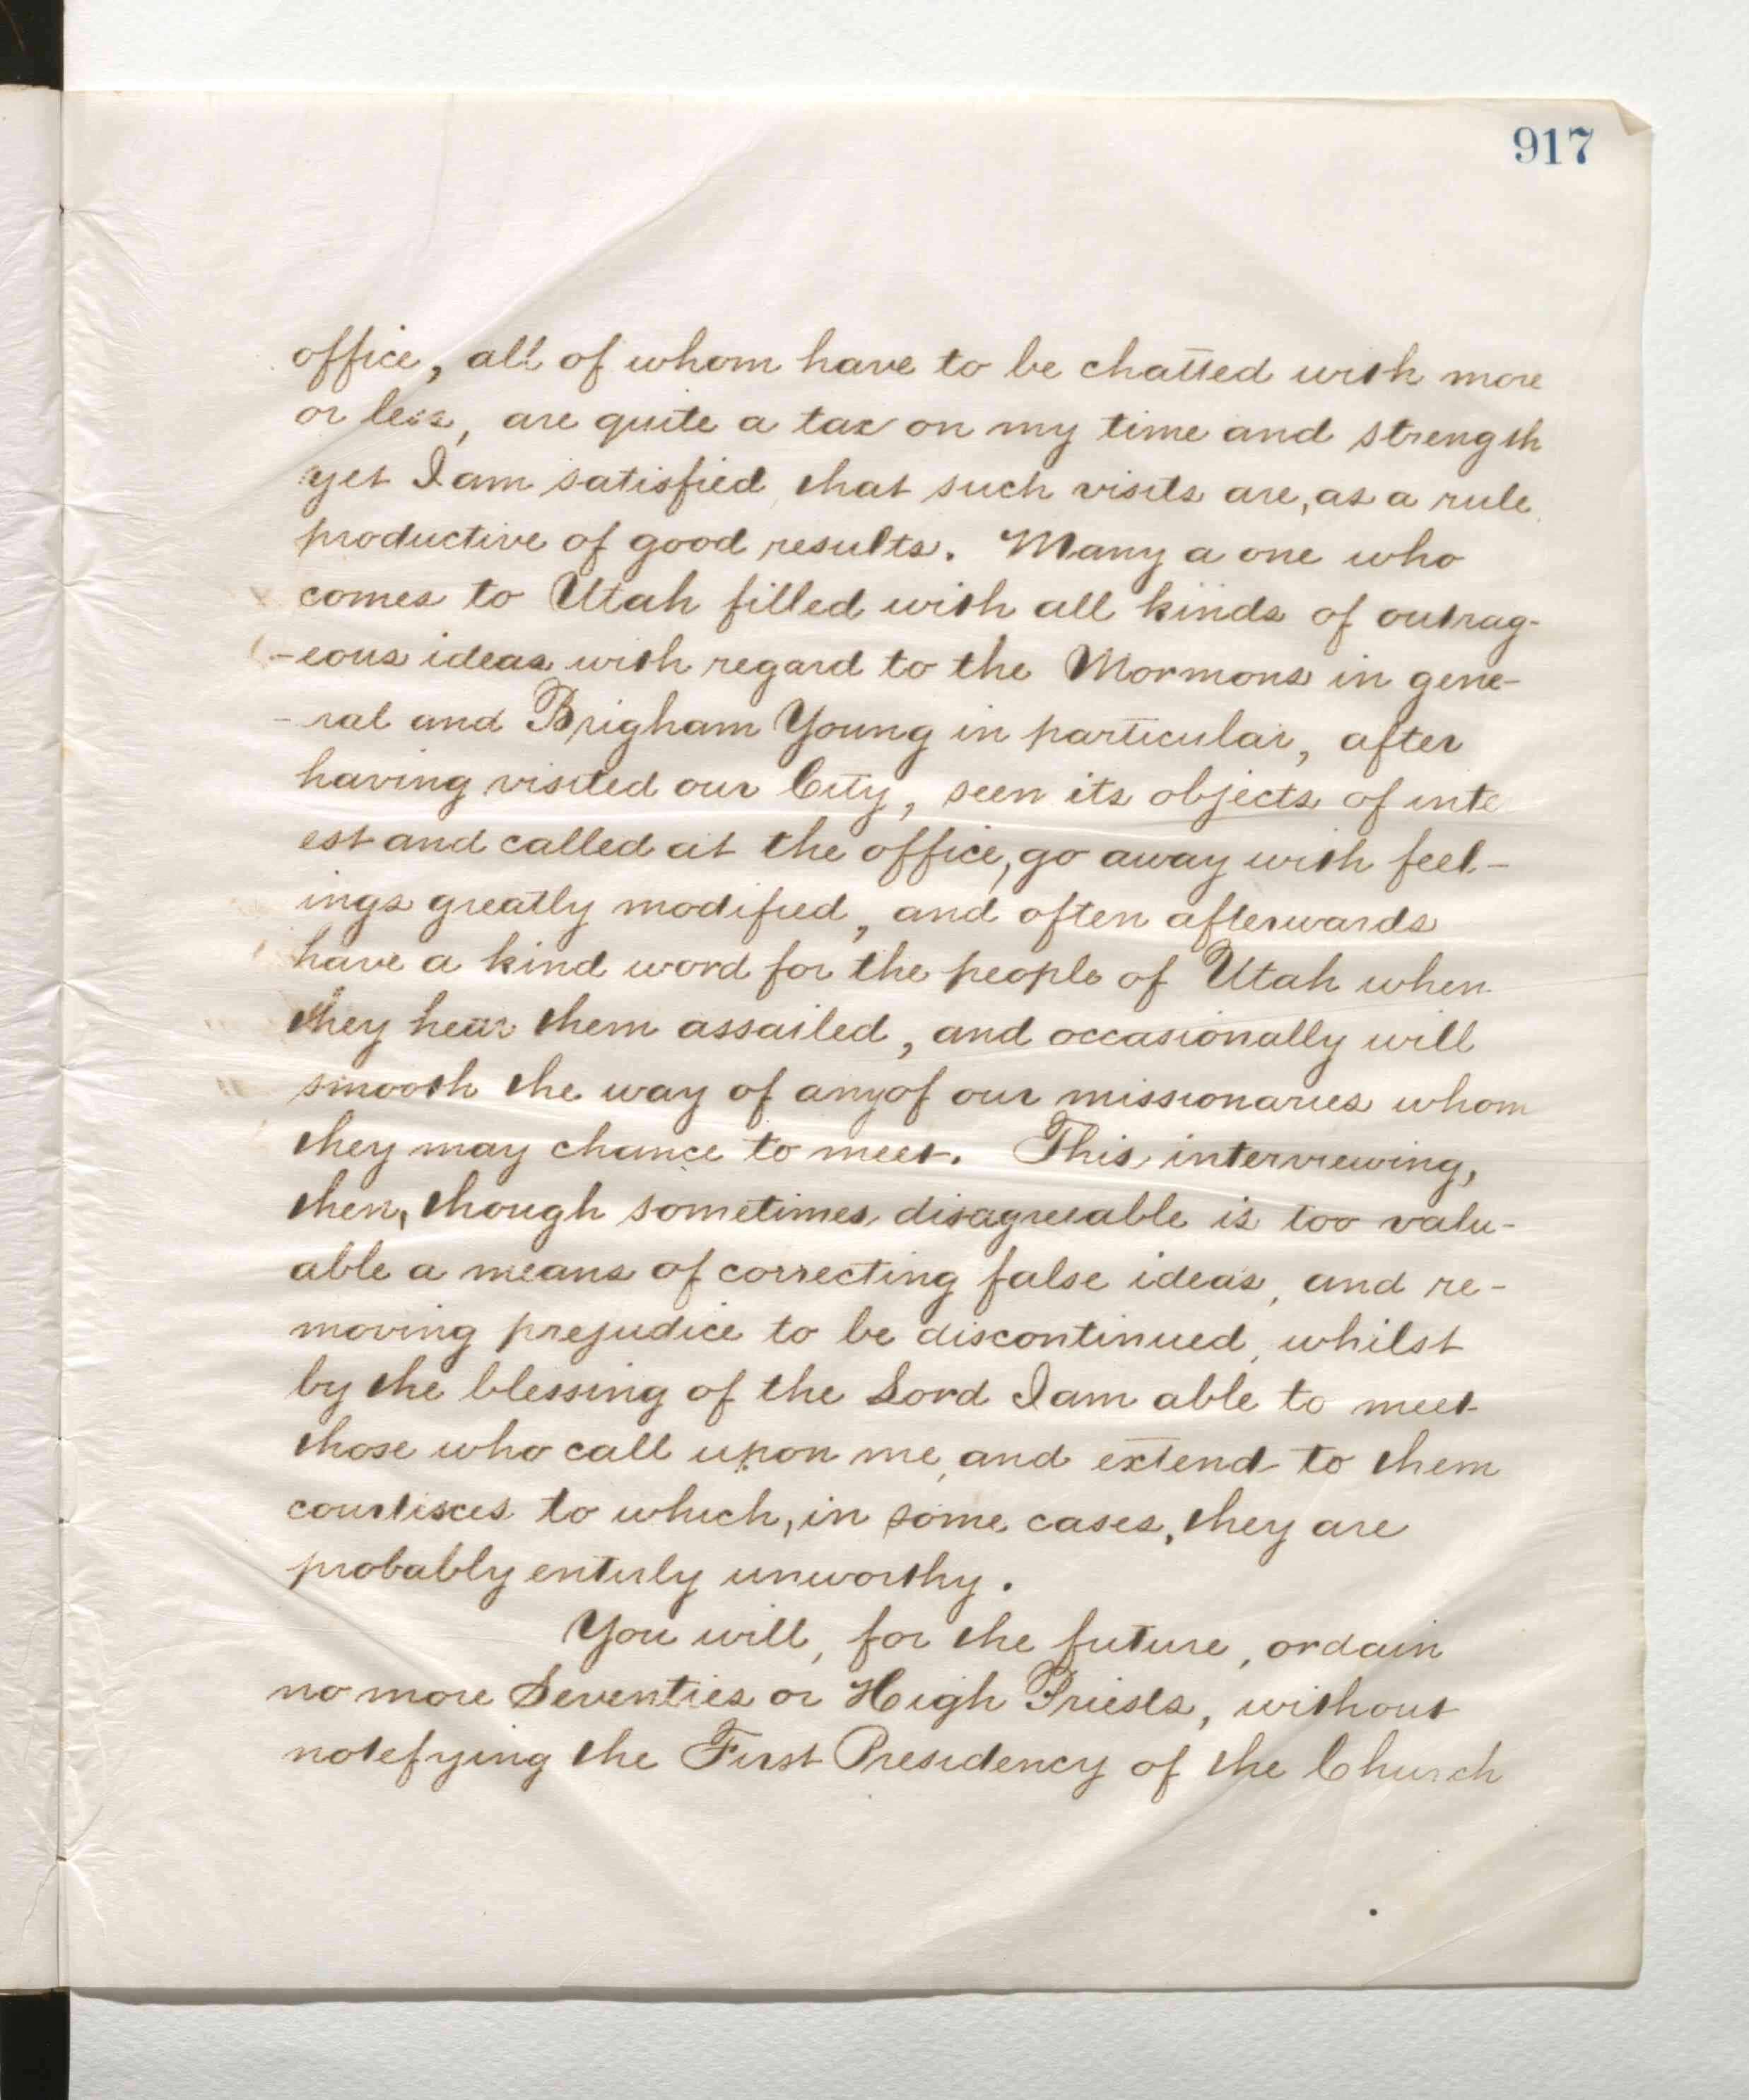 917
office, all of whom have to be chatted with more
or less, are quite a tax on my time and strength
yet I am satisfied, that such visits are, as a rule
productive of good results. Many a one who
comes to Utah filled with all kinds of outrag-
-eous ideas with regard to the Mormons in gene-
-ral and Brigham Young in particular, after
having visited our City, seen its objects of inte
est and called at the office, go away with feel-
ings greatly modified, and often afterwards
have a kind word for the people of Utah when
they hear them assailed, and occasionally will
smooth the way of any of our missionaries whom
they may chance to meet. This interviewing,
then, though sometimes disagreeable is too valu-
able a means of correcting false ideas, and re-
moving prejudice to be discontinued, whilst
by the blessing of the Lord I am able to meet
those who call upon me, and extend to them
courtisces to which, in some cases, they are
probably enterly unworthy.
You will, for the future, ordain
no more Seventies or High Priests, without
notefying the First Presidency of the Church